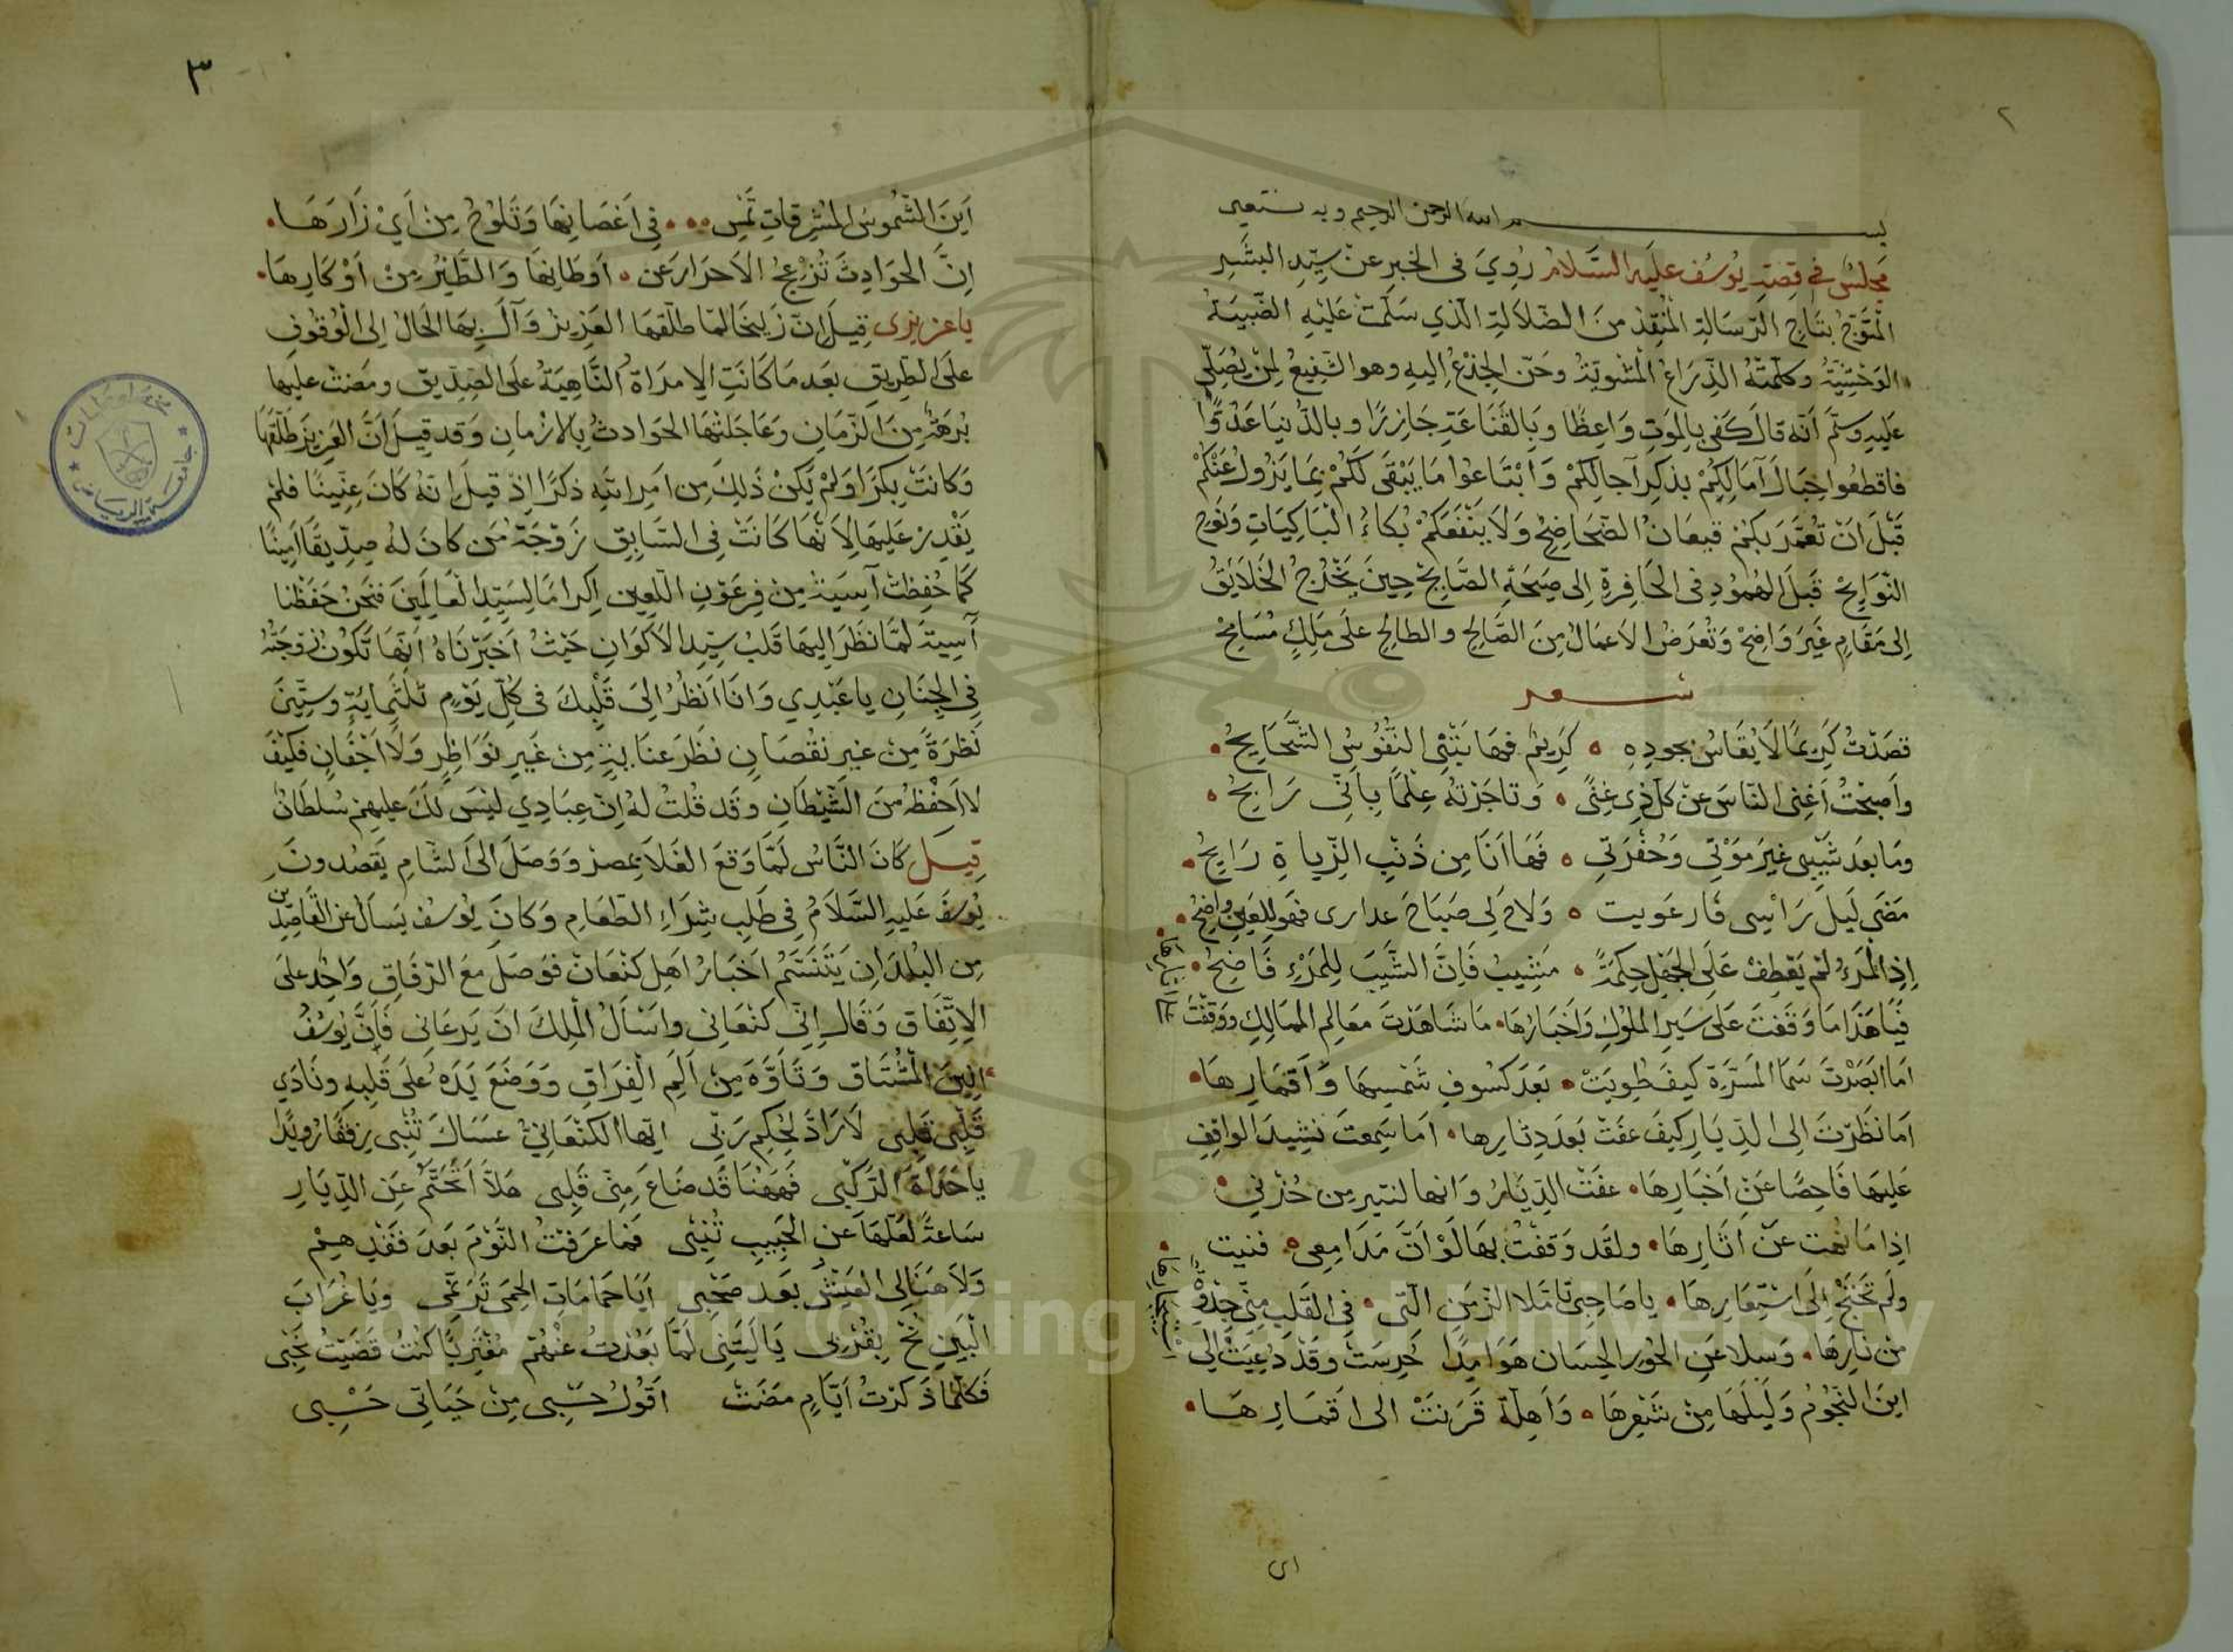 ٢
بسم الله الرحمن الرحيم وبه نستعين
مجلس في قصة يوسف عليه السلام روي في الخبر عن سيد البشر
المتوج بتاج الرسالة المنقذ من الضلالة الذي سلمت عليه الضبية
الوحشية وكلمته الذراع المشوية وحن الجذع اليه وهو الشفيع لمن يصلي
عليه وسلم أنه قال كفى بالموت واعظا وبالقناعة وبالدنيا عدوا
فاقطعوا حبال آمالكم بذكر آجالكم وابتاعوا ما يبقى لكم بما يزول عنكم
قبل ان تعمر بكم قيعان الضحاضح ولا ينفعكم بكاء الباكيات ونوح
النوايح قبل الهمود في الحافرة الى صيحة الصايح حين يخرج الخلايق
الى مقام غير واضح وتعرض الاعمال من الصالح والطالح على ملك مسامح
شعر
قصدت كريما لا يقاس بجوده كريم فها بثني النفوس الشحايح
وأصبحت أغنى الناس عن كل ذي غنى وتاجرته علما باني رابح
وما بعد شيبي غير موتي وحفرتي فها انا من ذنب الزيادة رايح
مضى ليل راسي فارعويت ولاح لي صباح عداري فهو للعين واضح
اذا المرء لم يعطف على الجهل حكمة مشيب فان الشيب للمرء فاضح
فيا هذا ما وقفت على سير الملوك واخبارها ما شاهدت معالم الممالك ووقفت على اثارها
اما ابصرت سما المسرة كيف طويت بعد كسوف شمسها واقمارها
اما نظرت الى الديار كيف عفت بعد دثارها اما سمعت نشيد الواقف
عليها فاحصا عن اخبارها عفت الديار وانها لتثير من حزني
اذا ما نمت عن اثارها ولقد وقفت بها لو ان مدامعي فنيت
ولم تحتج الى استيعارها يا صاحبي تاملا الزمن التي في القلب مني جذوة
من نارها وسلا عن الحور الحسان هوامدا خرست وقد دعيت الى استخبارها
اين النجوم وليلها من شعرها وأهلة قرنت الى اقمارها
اين
٣
اين الشموس المشرقات تمس في اغصانها وتلوح من اي زارها
ان الحوادث تزعج الاحرار عن اوطانها والطير من اوكارها
يا عزيزي قيل ان زليخا لما طلقها العزيز وآل بها الحال الى الوقوف
على الطريق بعد ما كانت الامراة الناهية على الصديق ومضت عليها
برهة من الزمان وعاجلتها الحوادث بالازمان وقد قيل ان العزيز طلقها
وكانت بكرا ولم يكن ذلك من امراته ذكرا اذ قيل انه كان عنينا فلم
يقدر عليها لانها كانت في السابق زوجة من كان له صديقا امينا
كما حفظت آسية من فرعون اللعين اكراما لسيد العالمين فنحن حفظنا
آسية لما نظر اليها قلب سيد الاكوان حيث اخبرناه انها تكون زوجته
في الجنان يا عبدي وانا انظر الى قلبك في كل يوم ثلثماية وستين
نظرة من غير نقصان نظر عناية من غير نواظر ولا اجفان فكيف
لا احفظه من الشيطان وقد قلت له ان عبادي ليس لك عليهم سلطان
قيل كان الناس لما وقع الغلا بمصر ووصل الى الشام يقصدون
يوسف عليه السلام في طلب شراء الطعام وكان يوسف يسأل عن القاصدين
من البلدان يتنسم اخبار اهل كنعان فوصل مع الرفاق واحد على
الاتفاق وقال اني كنعاني واسأل الملك ان يرعاني فأن يوسف
انين المشتاق وتأوه من الم الفراق ووضع يده على قلبه ونادى
قلبي قلبي لا راد لحكم ربي ايها الكنعاني عساك تنبي رفقا رويدا
يا حداة الركب فههنا قد ضاع مني قلبي هلا عن الديار
ساعة لعلها عن الحبيب تنبي فما عرفت النوم بعد فقدهم
ولا هنا لي العيش بعد صحبي ايا حمامات الحمى ترنمي ويا غراب
البين نح بقربي يا ليتني لما بعدت عنهم مقتربا كنت قضيت نحبي
فكلما ذكرت ايام مضت اقول حسبي من حياتي حسبي
جامعة الرياض
Copyright © King Saud University
195